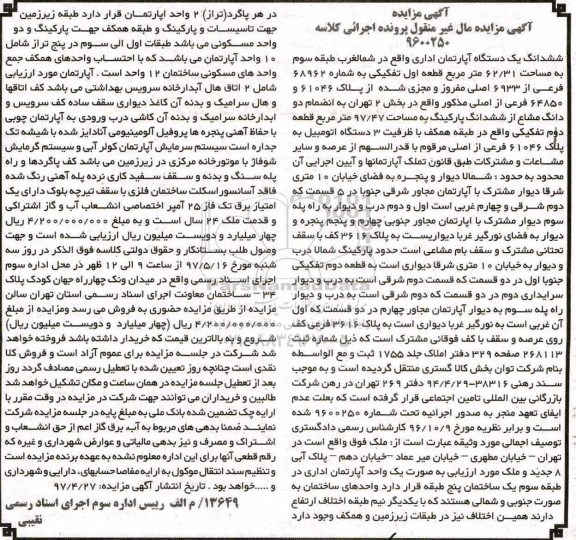 آگهی مزایده
آگهی مزایده مال غیر منقول پرونده اجرائی کلاسه
۹۶۰۰۲۵۰
ششدانگ یک دستگاه آپارتمان اداری واقع در شمالغرب طبقه سوم
به مساحت ۶۲/۳۱ متر مربع قطعه اول تفکیکی به شماره ۶۸۹۶۲
فرعی از ۶۹۳۳ اصلی مفروز و مجزی شده از پلاک ۶۱۰۴۶ و
۶۴۸۵۰ فرعی از اصلی مذکور واقع در بخش ۲ تهران به انضمام دو
دانگ مشاع از ششدانگ پارکینگ به مساحت ۹۷/۴۷ متر مربع قطعه
دوم تفکیکی واقع در طبقه همکف با ظرفیت ۳ دستگاه اتومبیل به
پلاک ۶۱۰۴۶ فرعی از اصلی مرقوم با قدرالسهم از عرصه و سایر
مشاعات و مشترکات طبق قانون تملک آپارتمانها و آیین اجرایی آن
محدود به حدود : شمالا دیوار و پنجره به فضای خیابان ۱۰ متری
شرقا دیوار مشترک با آپارتمان مجاور شرقی جنوبا در ۵ قسمت که
دوم شرقی و چهارم غربی است اول و دوم درب و دیوار به راه پله
سوم دیوار مشترک با آپارتمان مجاور جنوبی چهارم و پنجم پنجره و
دیوار به فضای نورگیر غربا دیواریست به پلاک ۳۶۱۶ کف با سقف
تحتانی مشترک و سقف بام مشاعی است حدود پارکینگ شمالا درب
و دیوار به خیابان ۱۰ متری شرقا دیواری است به قطعه دوم تفکیکی
جنوبا اول در دو قسمت که قسمت دوم شرقی است به درب و دیوار
سرایداری دوم در دو قسمت که دوم شرقی است به درب و دیوار
راه پله سوم به دیوار آپارتمان مجاور چهارم در دو قسمت که اول
آن غربی است به نورگیر غربا دیواری است به پلاک ۳۶۱۶ فرعی کف
روی عرصه و سقف با کف فوقانی مشترک است که ذیل شماره ثبت
۲۶۸۱۱۳ صفحه ۳۲۹ دفتر املاک جلد ۱۷۵۵ ثبت و مع الواسطه
بنام شرکت توان بخش کالا گستری منتقل گردیده است و به موجب
سند رهنی ۳۸۳۱۶-۹۴/۴/۲۹ دفتر ۲۶۹ تهران در رهن شرکت
بازرگانی بین المللی تامین اجتماعی قرار گرفته است که بعلت عدم
ایفای تعهد منجر به صدور اجرائیه تحت شماره ۹۶۰۰۲۵۰ شده
است و برابر نظریه مورخ ۹۶/۱۰/۹ کارشناس رسمی دادگستری
توصیف اجمالی مورد وثیقه عبارت است از: ملک فوق واقع است در
تهران – خیابان مطهری – خیابان میر عماد –خیابان دهم – پلاک آبی
۸ جدید و ملک مورد ارزیابی به صورت یک واحد آپارتمان اداری در
طبقه سوم یک ساختمان پنج طبقه قرار دارد واحدهای ساختمان به
صورت جنوبی و شمالی هستند که با یکدیگر نیم طبقه اختلاف ارتفاع
دارند همین اختلاف نیز در طبقات زیرزمین و همکف وجود دارد
در هر پاگرد(تراز) ۲ واحد آپارتمان قرار دارد طبقه زیرزمین
جهت تاسیسات و پارکینگ و طبقه همکف جهت پارکینگ و دو
واحد مسکونی می باشد طبقات اول الی سوم در پنج تراز شامل
۱۰ واحد آپارتمان می باشد که با احتساب واحدهای همکف جمع
واحد های مسکونی ساختمان ۱۲ واحد است . آپارتمان مورد ارزیابی
شامل ۲ اتاق هال آبدارخانه سرویس بهداشتی می باشد کف اتاقها
و هال سرامیک و بدنه آن کاغذ دیواری سقف ساده کف سرویس و
ابدارخانه سرامیک و بدنه آن کاشی درب ورودی به آپارتمان چوبی
با حفاظ آهنی پنجره ها پروفیل آلومینیومی آنادایز شده با شیشه تک
جداره است سیستم سرمایش آپارتمان کولر آبی و سیستم گرمایش
شوفاژ با موتورخانه مرکزی در زیرزمین می باشد کف پاگردها و راه
پله سنگ و بدنه و سقف سفید کاری نرده پله آهنی رنگ شده
فاقد آسانسور اسکلت ساختمان فلزی با سقف تیرچه بلوک دارای یک
امتیاز برق تک فاز ۲۵ آمپر اختصاصی انشعاب آب و گاز اشتراکی
و قدمت ملک ۲۴ سال است و به مبلغ ۴/۲۰۰/۰۰۰/۰۰۰ ریال
چهار میلیارد و دویست میلیون ریال ارزیابی شده است و جهت
وصول طلب بستانکار و حقوق دولتی کلاسه فوق الذکر در روز سه
شنبه مورخ ۹۷/۵/۱۶ از ساعت ۹ الی ۱۲ ظهر در محل اداره سوم
اجرای اسناد رسمی واقع در میدان ونک چهارراه جهان کودک پلاک
۳۴ – ساختمان معاونت اجرای اسناد رسمی استان تهران سالن
مزایده از طریق مزایده حضوری به فروش می رسد ومزایده از مبلغ
۴/۲۰۰/۰۰۰/۰۰۰ ریال (چهار میلیارد و دویست میلیون ریال)
شروع و به بالاترین قیمت که خریدار داشته باشد فروخته خواهد
شد شرکت در جلسه مزایده برای عموم آزاد است و فروش کلا
نقدی است چنانچه روز تعیین شده با تعطیل رسمی مصادف گردد روز
بعد از تعطیل جلسه مزایده در همان ساعت و مکان تشکیل خواهد شد
طالبین و خریداران می توانند جهت شرکت در مزایده در وقت مقرر با
ارایه چک تضمین شده بانک ملی به مبلغ پایه در جلسه مزایده شرکت
نمایند ضمنا بدهی های مربوط به آب، برق گاز اعم از حق انشعاب و
اشتراک و مصرف و نیز بدهی مالیاتی و عوارض شهرداری و غیره که
رقم قطعی آنها برای این اداره معلوم نشده به عهده برنده مزایده است
و تنظیم سند انتقال موکول به ارایه مفاصا حسابهای، دارایی و شهرداری
و .....خواهد بود . تاریخ انتشار آگهی مزایده: ۹۷/۴/۲۷
۱۳۶۴۹/ م الف رییس اداره سوم اجرای اسناد رسمی
نقیبی